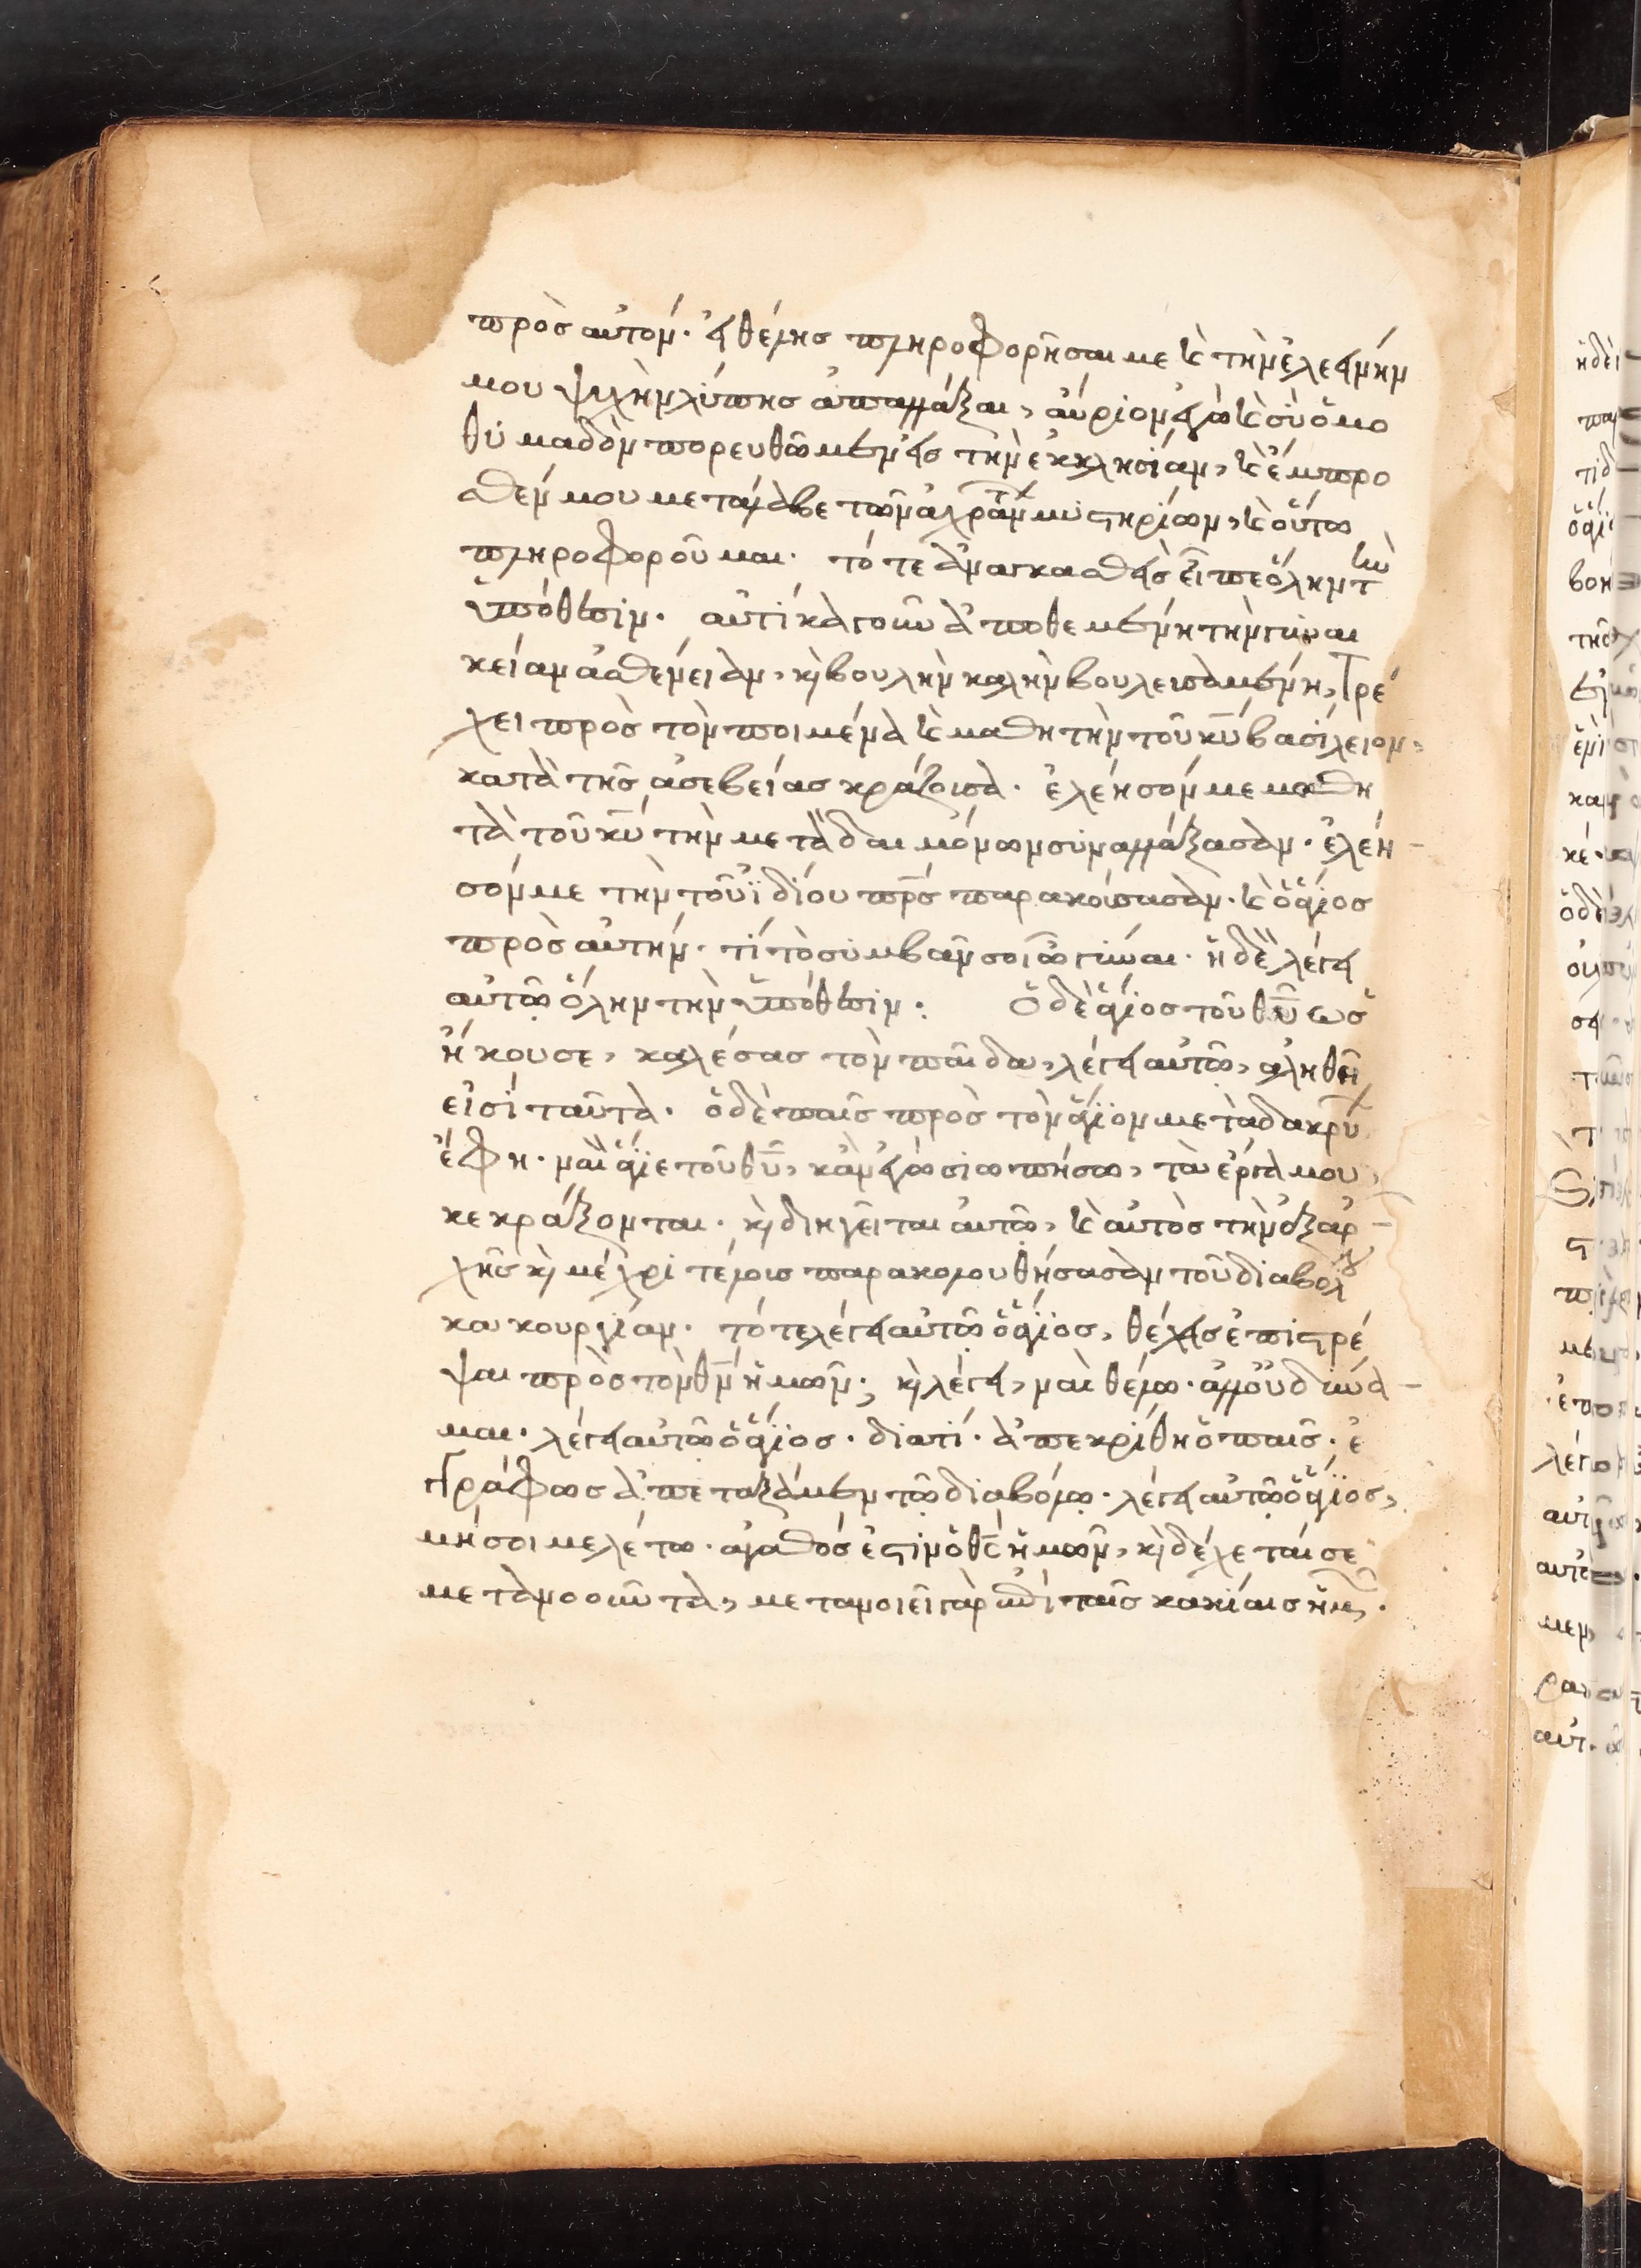 πρὸς αὐτόν. εἰ θέλης πληροφορῆσαι με καὶ τὴν ἐλεεινήν
μου ψυχὴν λύπης ἀπαλλάξαι, αὔριον ἐγὼ καὶ σὺ ὁμο
θυμαδὸν πορευθῶμεν εἰς τὴν ἐκκλησίαν, καὶ ἔμπρο
σθέν μου μετάλαβε τῶν ἀχράντων μυστηρίων, καὶ οὕτω
πληροφοροῦμαι. τότε ἀναγκασθεὶς εἶπε ὅλην τὴν
ὑπόθεσιν. αὐτίκα γοῦν ἀποθεμένη τὴν γυναι
κείαν ἀσθένειαν, κ βουλὴν καλὴν βουλευσαμένη, τρέ
χει πρὸς τὸν ποιμένα καὶ μαθητὴν τοῦ κυ βασίλειον,
κατὰ τῆς ἀσεβείας κράζουσα. ἐλέησόν με μαθη
τὰ τοῦ κυ τὴν μετὰ δαιμόνων συναλλάξασαν. ἐλέη
σόν με τὴν τοῦ ἰδίου πρς παρακούσασαν. καὶ ὁ ἅγιος
πρὸς αὐτήν. τί τὸ συμβάν σοι ὦ γύναι. ἡ δὲ λέγει
αὐτῶ ὅλην τὴν ὑπόθεσιν: Ὁ δὲ ἅγιος τοῦ θυ ὡς
ἤκουσε, καλέσας τὸν παῖδα, λέγει αὐτῶ, ἀληθῆ
εἰσὶ ταῦτα. ὁ δὲ παῖς πρὸς τὸν ἅγιον μετὰ δακρύων
ἔφη. ναὶ ἅγιε τοῦ θυ, κἂν ἐγὼ σιωπήσω, τὰ ἔργα μου
κεκράξονται. κ διηγεῖται αὐτῶ, καὶ αὐτὸς τὴν ἐξαρ
χῆς κ μέχρι τέλους παρακολουθήσασαν τοῦ διαβόλου
κακουργίαν. τότε λέγει αὐτῶ ὁ ἅγιος, θέλεις ἐπιστρέ
ψαι πρὸς τὸν θν ἡμῶν; κ λέγει, ναὶ θέλω. ἀλλ' οὐ δύνα
μαι. λέγει αὐτῶ ὁ ἅγιος. διατί. ἀπεκρίθη ὁ παῖς. ἐ
γγράφως ἀπεταξάμην τῶ διαβόλω. λέγει αὐτῶ ὁ ἅγιος,
μή σοι μελέτω. ἀγαθός ἐστιν ὁ θς ἡμῶν, κ δέχεταί σε
μετανοοῦντα, μετανοεῖ γὰρ ἐπὶ ταῖς κακίαις ἡμῶν.